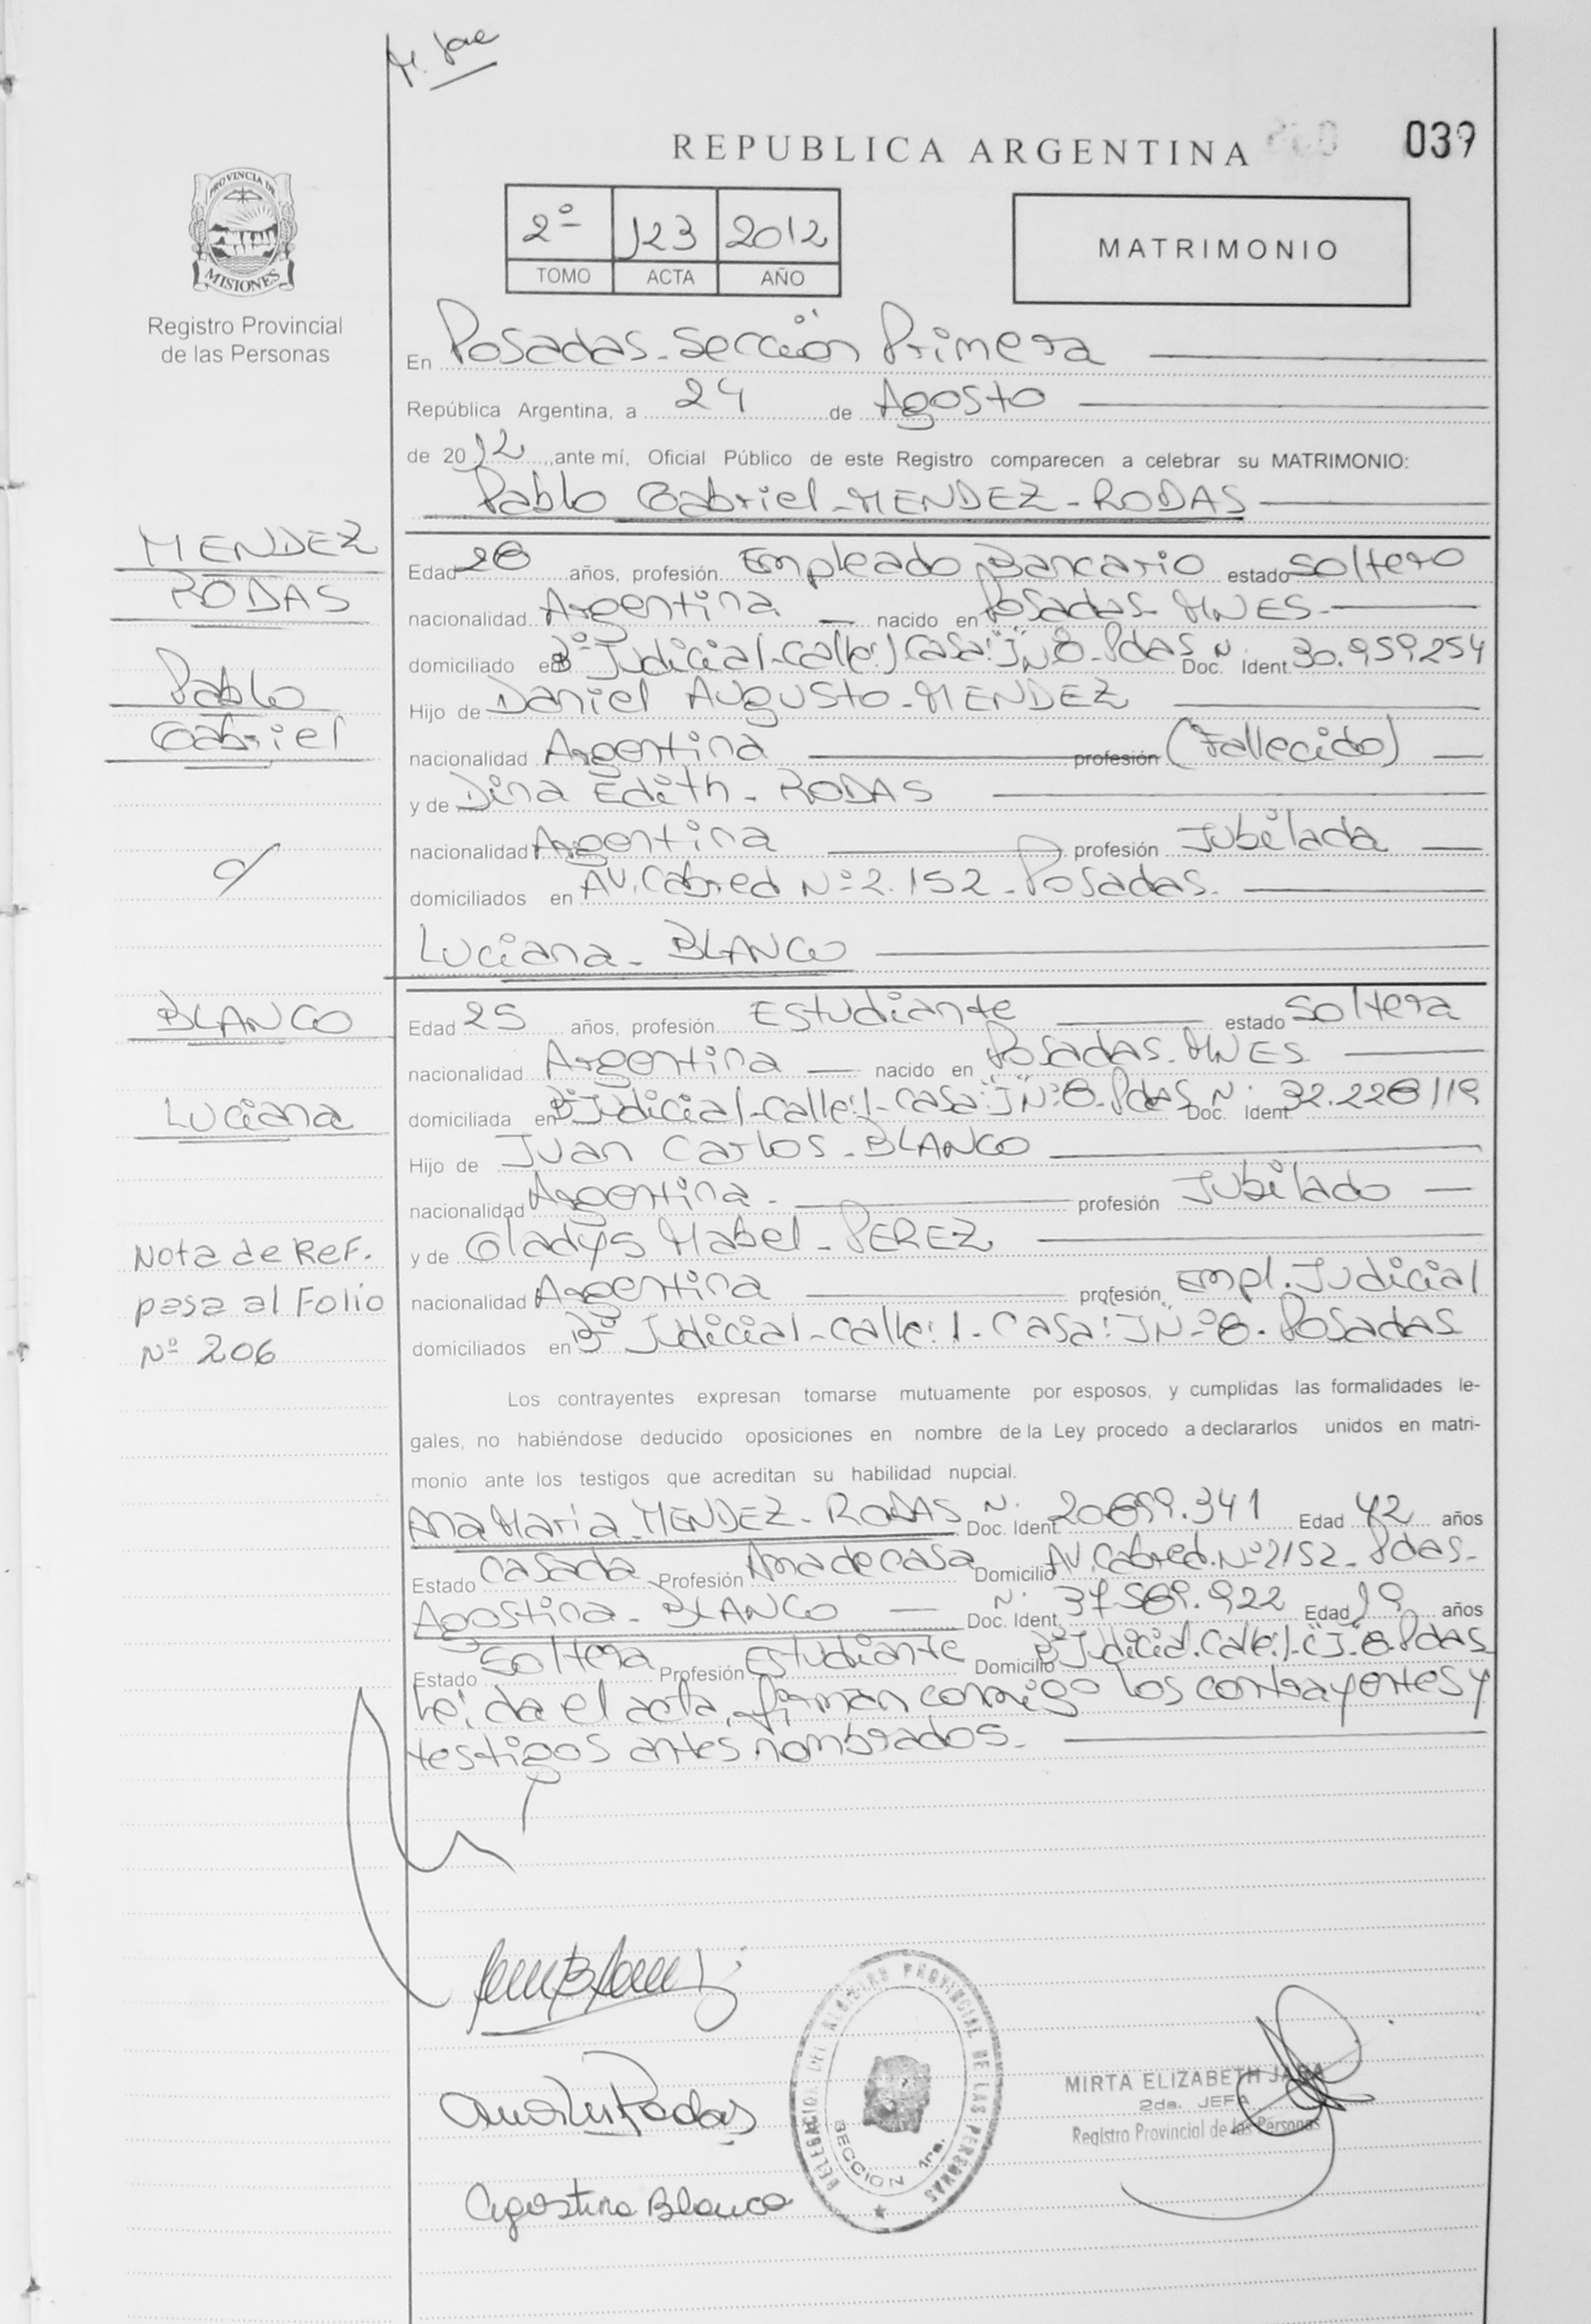 REPUBLICA ARGENTINA
039
PROVINCIA DE
MISIONES
Registro Provincial
de las Personas
2º 123 2012
TOMO ACTA AÑO
MATRIMONIO
En Posadas - Sección Primera
República Argentina, a 24 de Agosto
de 2012, ante mí, Oficial Público de este Registro comparecen a celebrar su MATRIMONIO:
Pablo Gabriel - MENDEZ - RODAS
MENDEZ
RODAS
Pablo
Gabriel
c/
Edad 28 años, profesión Empleado Bancario estado soltero
nacionalidad Argentina nacido en Posadas - MNES -
domiciliado en Bº Judicial - calle: 1 casa: "J" Nº 8 - Pdas Doc. Ident. N. 30.959.254
Hijo de Daniel Augusto - MENDEZ
nacionalidad Argentina profesión (Fallecido)
y de Dina Edith - RODAS
nacionalidad Argentina profesión Jubilada
domiciliados en AV. Cabred Nº 2.152 - Posadas.
Luciana - BLANCO
BLANCO
Luciana
Edad 25 años, profesión Estudiante estado soltera
nacionalidad Argentina nacido en Posadas - MNES
domiciliada en Bº Judicial - calle: 1 - casa: "J" Nº 8 - Pdas Doc. Ident. N. 32.228119
Hijo de Juan Carlos - BLANCO
nacionalidad Argentina - profesión Jubilado
y de Gladys Mabel - PEREZ
nacionalidad Argentina profesión Empl. Judicial
domiciliados en Bº Judicial - calle: 1 - casa: J Nº 8 - Posadas
Nota de Ref.
pasa al Folio
Nº 206
Los contrayentes expresan tomarse mutuamente por esposos, y cumplidas las formalidades le-
gales, no habiéndose deducido oposiciones en nombre de la Ley procedo a declararlos unidos en matri-
monio ante los testigos que acreditan su habilidad nupcial.
Ana Maria - MENDEZ - RODAS Doc. Ident. N. 20.699.341 Edad 42 años
Estado Casada Profesión Ama de casa Domicilio AV. Cabred. Nº 2152 - Pdas -
Agostina - BLANCO Doc. Ident. N. 37.589.922 Edad 19 años
Estado Soltera Profesión Estudiante Domicilio Bº Judicial. Calle: 1 - C "J" 8. Pdas
Leída el acta, firman conmigo los contrayentes y
testigos antes nombrados -
Agostina Blanco
DELEGACION DEL REGISTRO PROVINCIAL DE LAS PERSONAS
SECCION 1ra.
MIRTA ELIZABETH JARA
2da. JEFA
Registro Provincial de las Personas